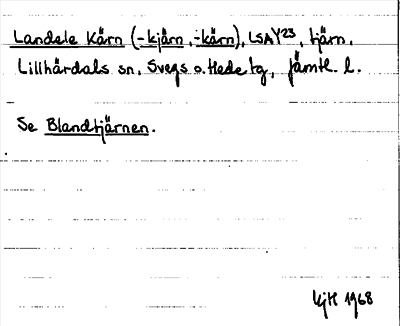 Landele Kårn (-kjårn, -kårn), LSA Y23, tjärn,
Lillhärdals sn, Svegs o. Hede tg, Jämtl. l.
Se Blandtjärnen.
KjH 1968